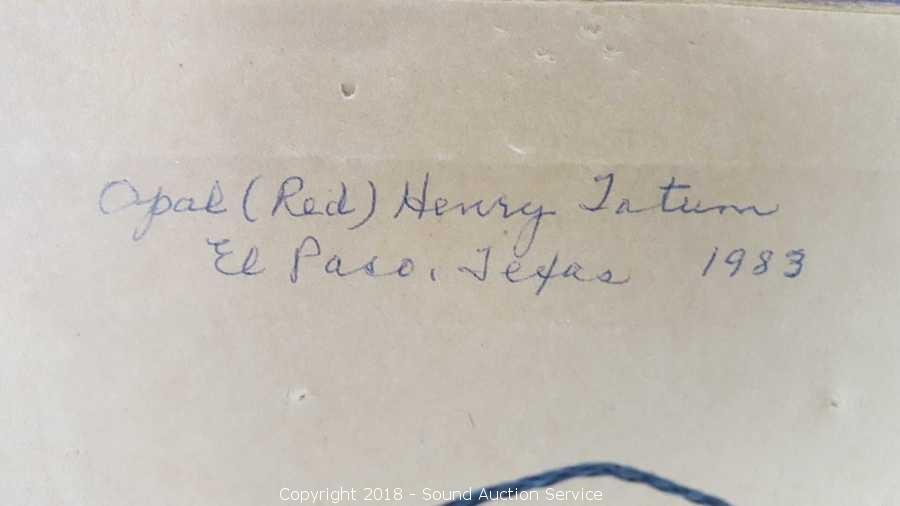 Opal (Red) Henry Tatum
El Paso, Texas 1983
Copyright 2018 - Sound Auction Service